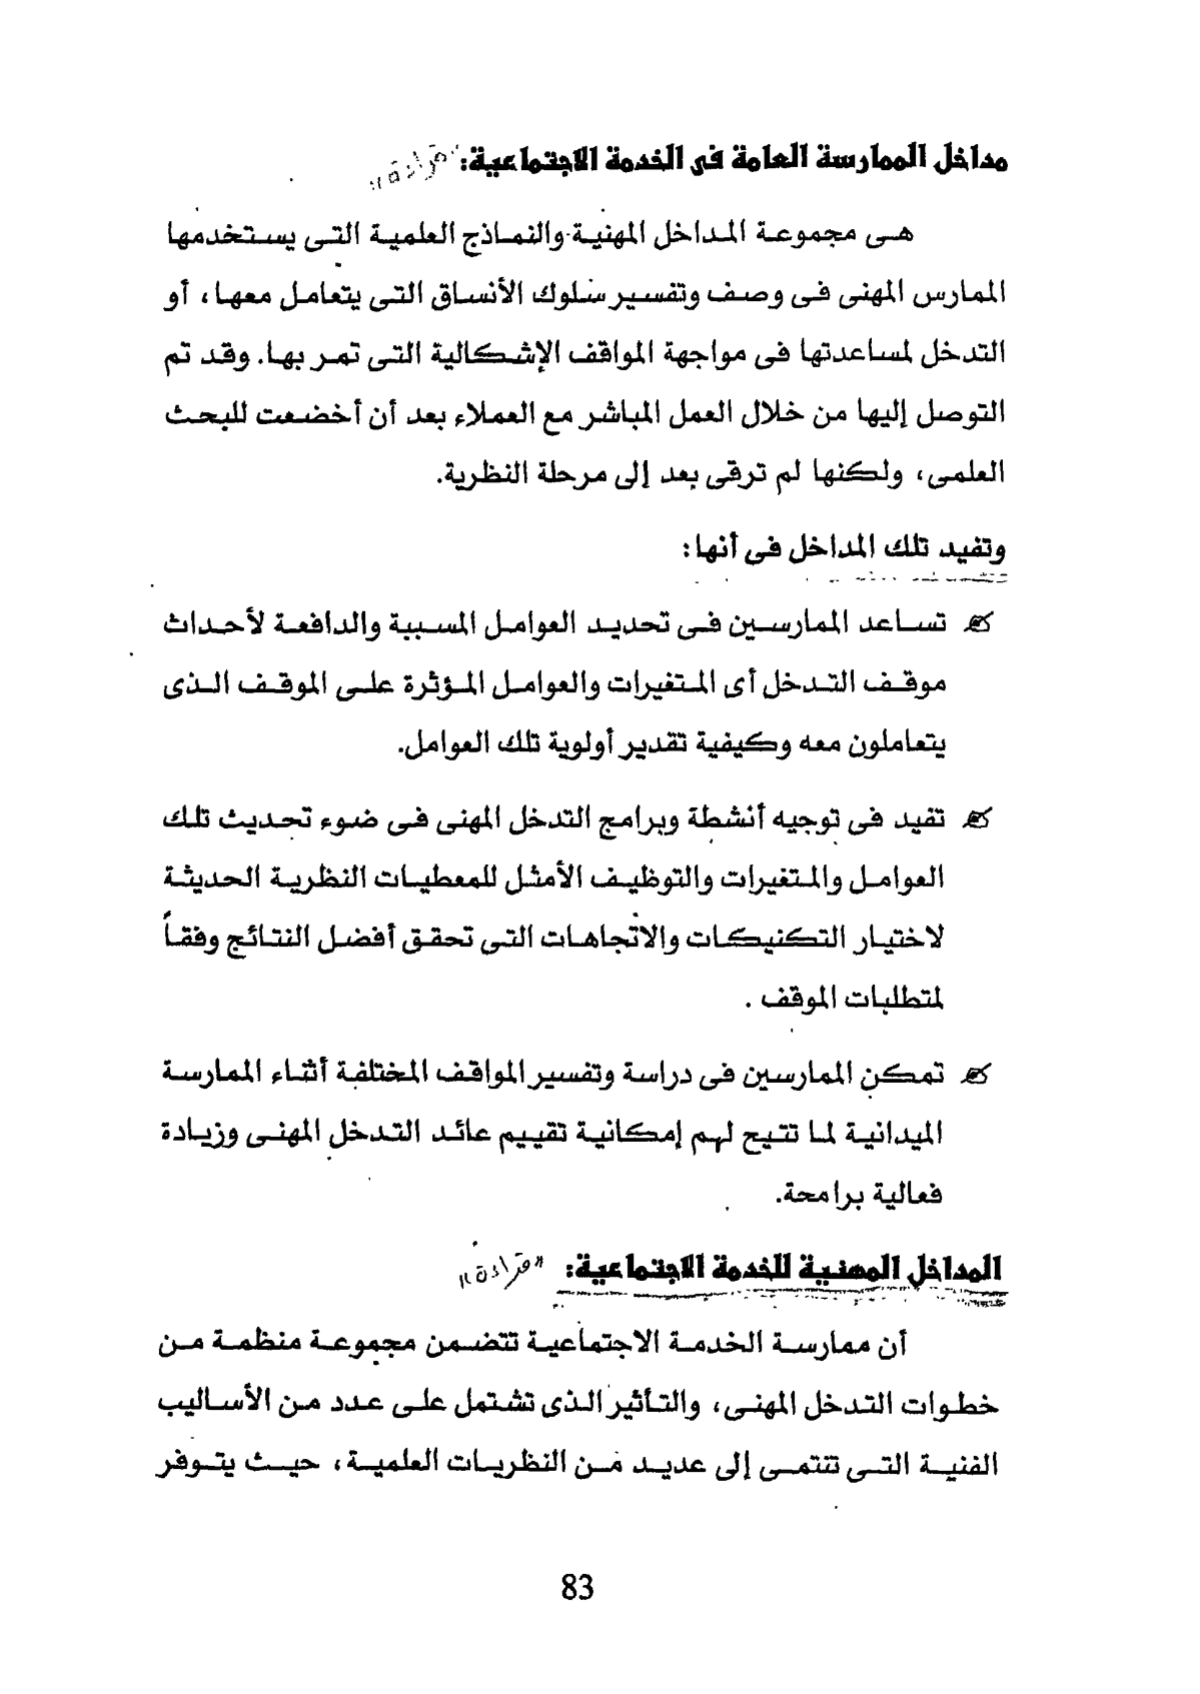 مداخل الممارسة العامة فى الخدمة الاجتماعية: "قراءة"
هى مجموعة المداخل المهنية والنماذج العلمية التى يستخدمها
الممارس المهنى فى وصف وتفسير سلوك الأنساق التى يتعامل معها، أو
التدخل لمساعدتها فى مواجهة المواقف الإشكالية التى تمر بها. وقد تم
التوصل إليها من خلال العمل المباشر مع العملاء بعد أن أخضعت للبحث
العلمى، ولكنها لم ترقى بعد إلى مرحلة النظرية.
وتفيد تلك المداخل فى أنها:
تساعد الممارسين فى تحديد العوامل المسببة والدافعة لأحداث
موقف التدخل أى المتغيرات والعوامل المؤثرة على الموقف الذى
يتعاملون معه وكيفية تقدير أولوية تلك العوامل.
تفيد فى توجيه أنشطة وبرامج التدخل المهنى فى ضوء تحديث تلك
العوامل والمتغيرات والتوظيف الأمثل للمعطيات النظرية الحديثة
لاختيار التكنيكات والاتجاهات التى تحقق أفضل النتائج وفقاً
لمتطلبات الموقف .
تمكن الممارسين فى دراسة وتفسير المواقف المختلفة أثناء الممارسة
الميدانية لما تتيح لهم إمكانية تقييم عائد التدخل المهنى وزيادة
فعالية برامحة.
المداخل المهنية للخدمة الاجتماعية: "قراءة"
أن ممارسة الخدمة الاجتماعية تتضمن مجموعة منظمة من
خطوات التدخل المهنى، والتأثير الذى تشتمل على عدد من الأساليب
الفنية التى تنتمى إلى عديد من النظريات العلمية، حيث يتوفر
83